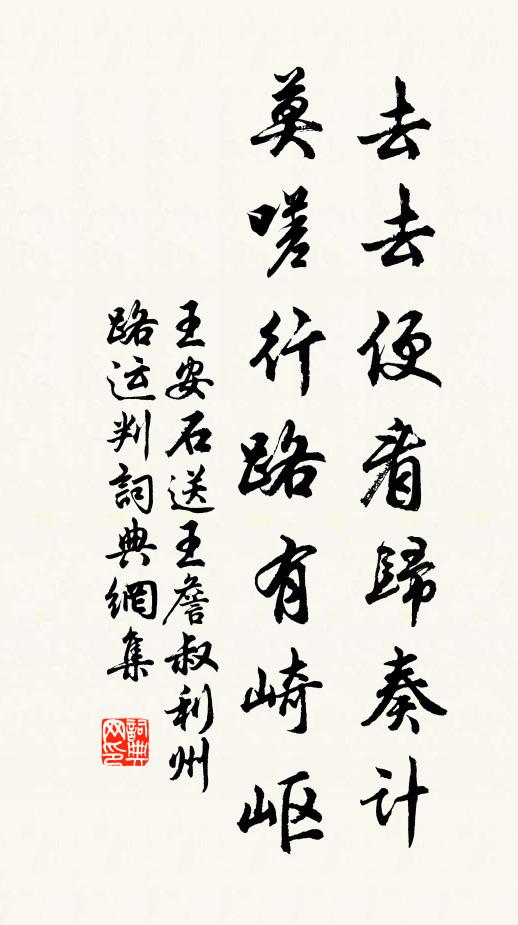 去去便看歸奏計
莫嗟行路有崎嶇
王安石送王詹叔利州
路運判詞典網集
詞典网印